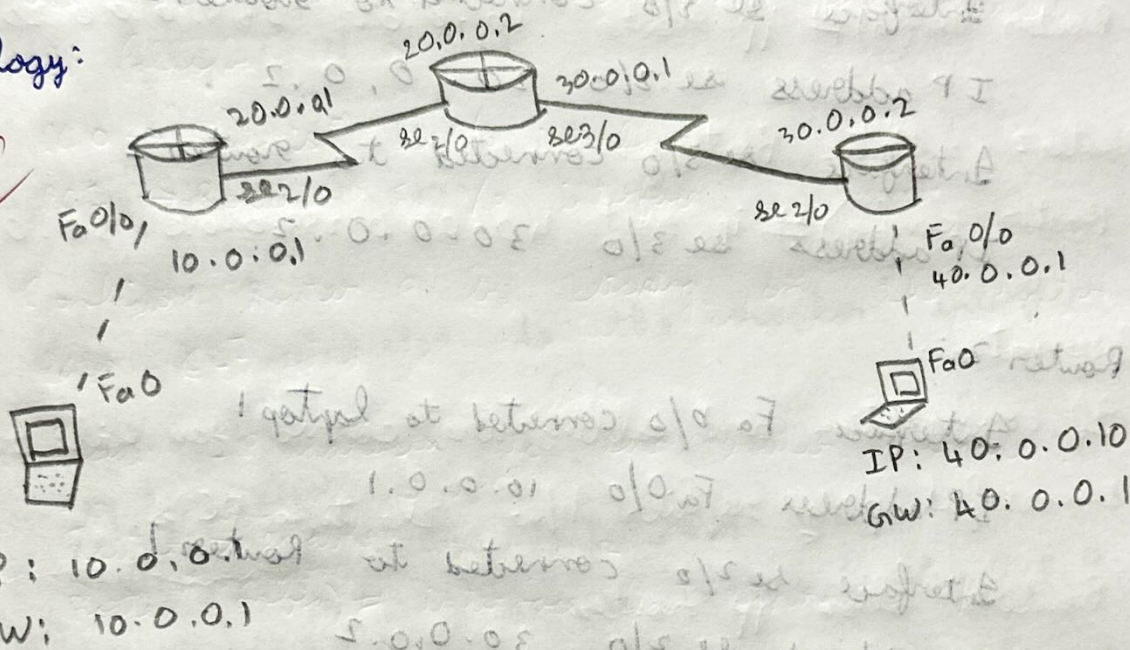 logy:
20.0.0.2
20.0.0.1
30.0.0.1
30.0.0.2
se2/0
se3/0
se2/0
se2/0
Fa0/0
10.0.0.1
Fa 0/0
40.0.0.1
Fa0
Fa0
IP: 40.0.0.10
GW: 40.0.0.1
P: 10.0.0.1
W: 10.0.0.1